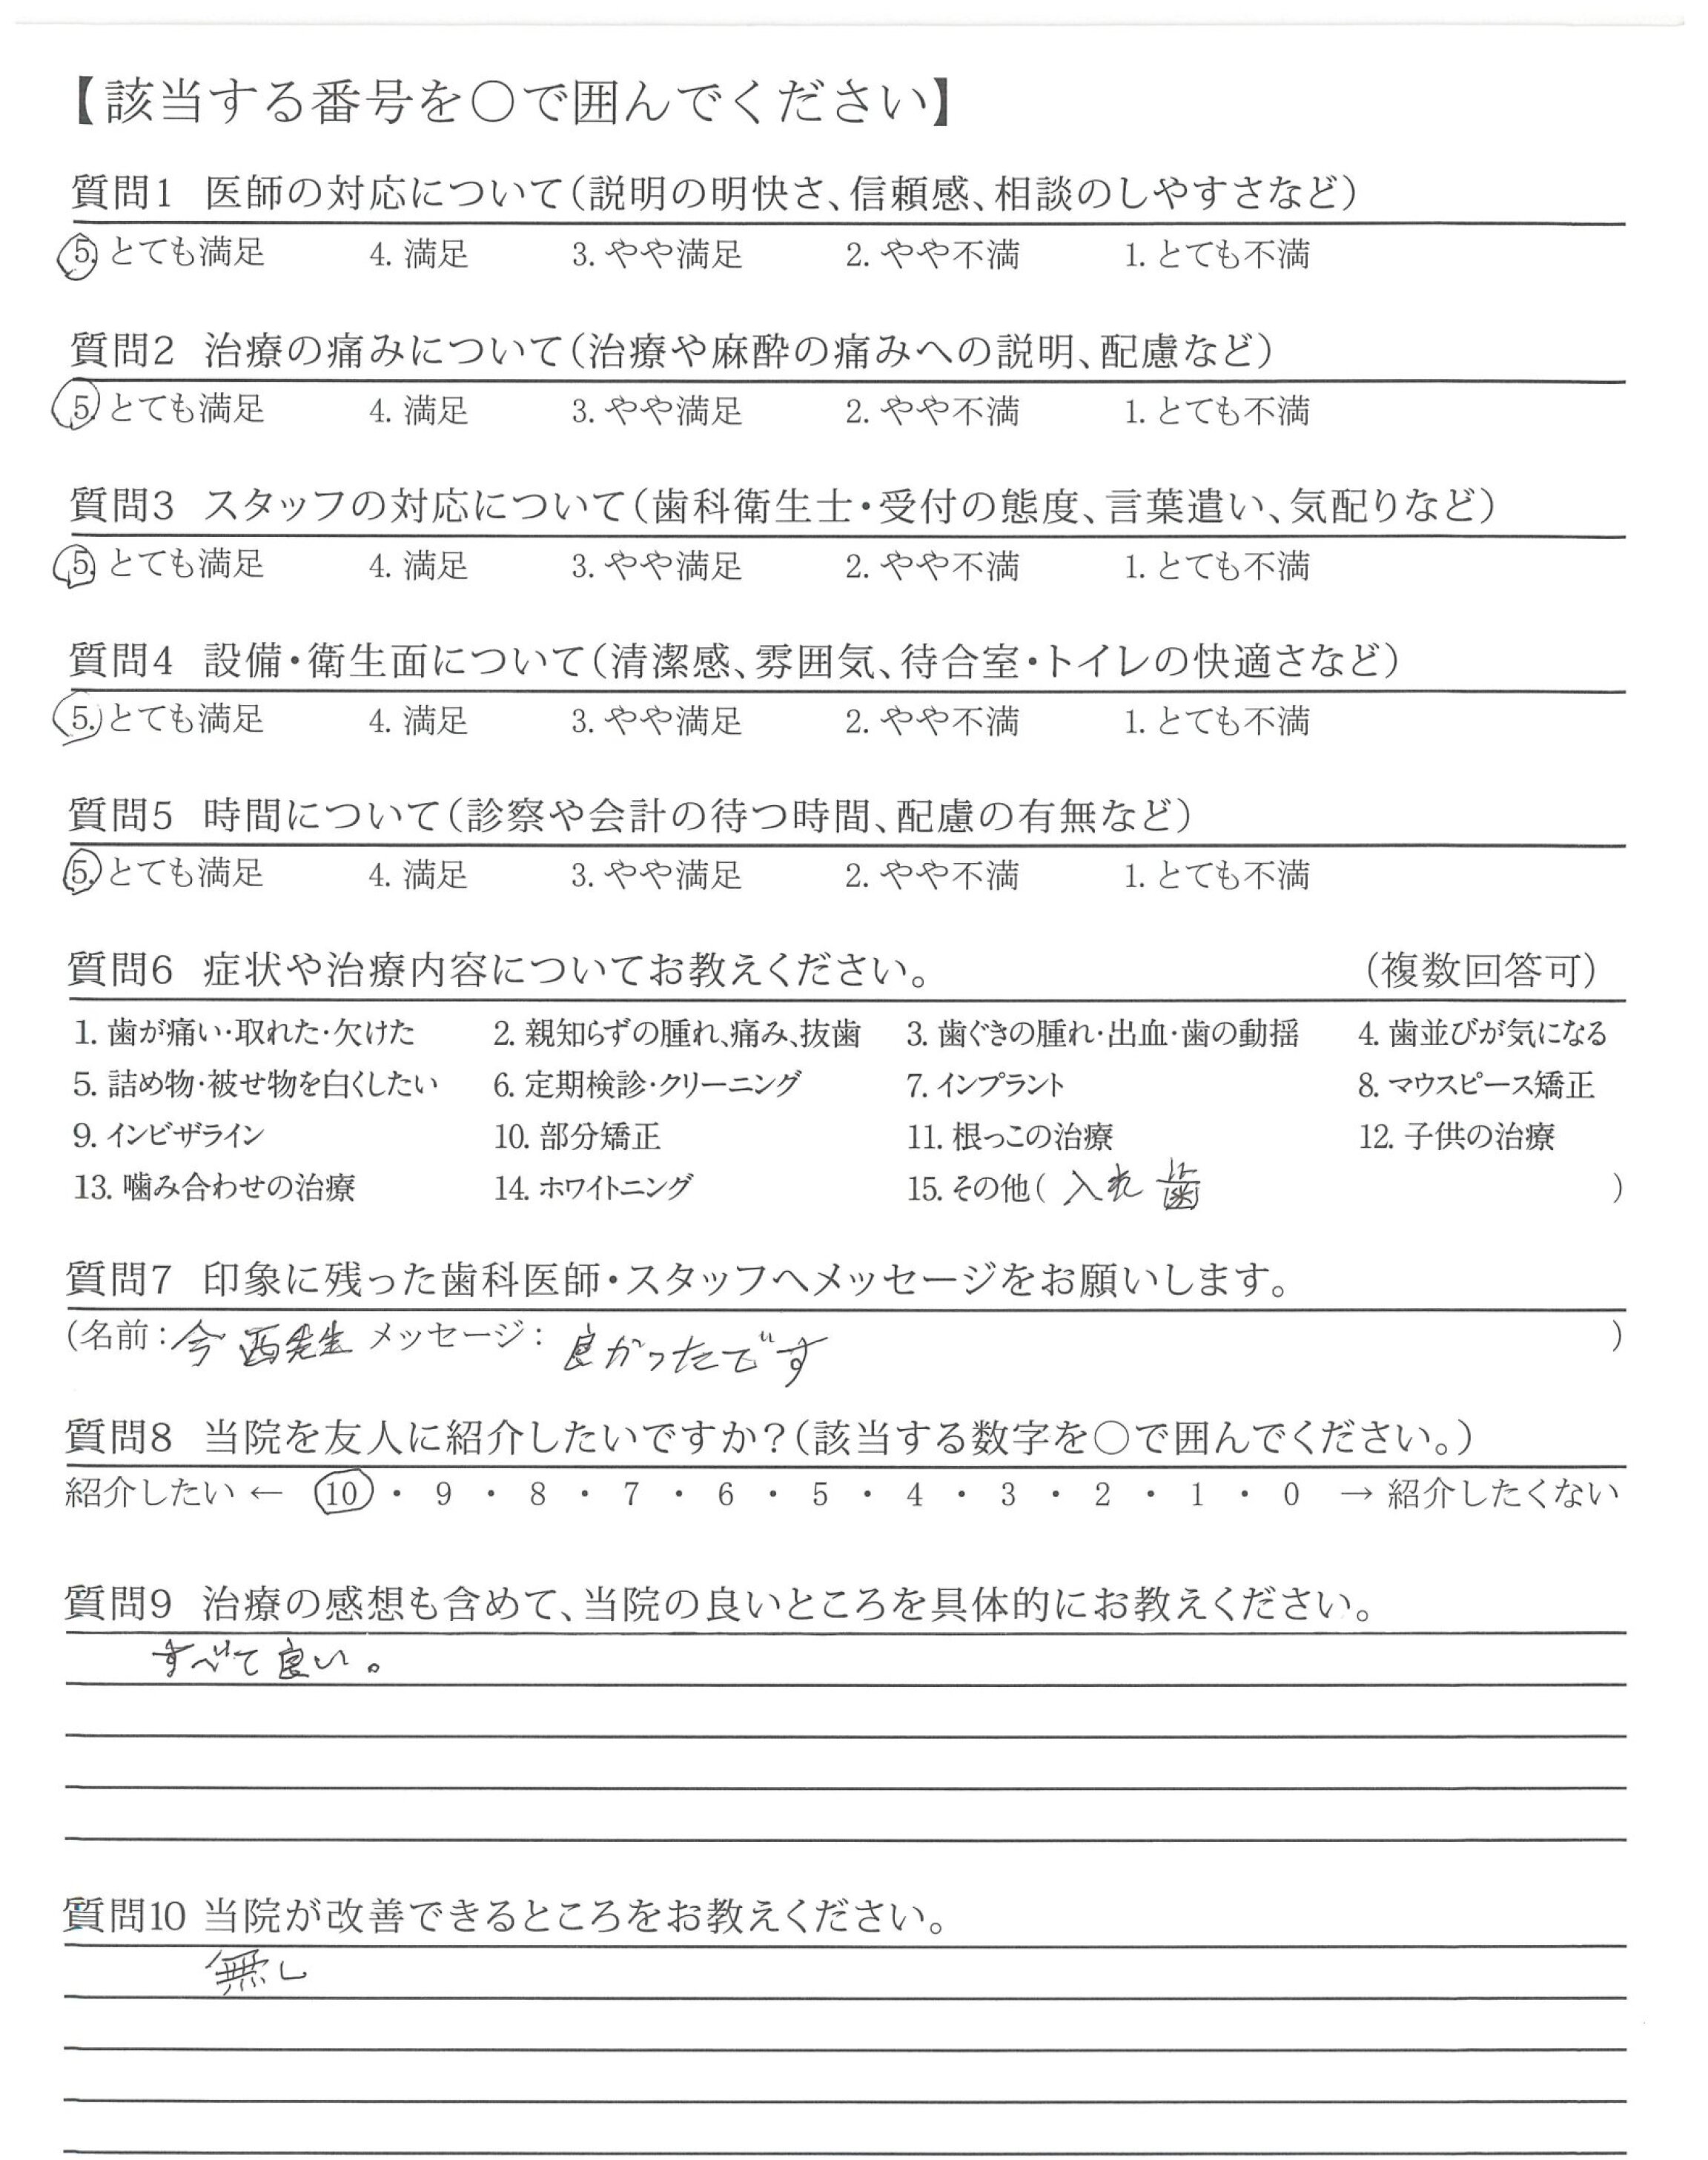 【該当する番号を○で囲んでください】
質問1 医師の対応について(説明の明快さ、信頼感、相談のしやすさなど)
5. とても満足 4. 満足 3. やや満足 2. やや不満 1. とても不満
質問2 治療の痛みについて(治療や麻酔の痛みへの説明、配慮など)
5. とても満足 4. 満足 3. やや満足 2. やや不満 1. とても不満
質問3 スタッフの対応について(歯科衛生士・受付の態度、言葉遣い、気配りなど)
5. とても満足 4. 満足 3. やや満足 2. やや不満 1. とても不満
質問4 設備・衛生面について(清潔感、雰囲気、待合室・トイレの快適さなど)
5. とても満足 4. 満足 3. やや満足 2. やや不満 1. とても不満
質問5 時間について(診察や会計の待つ時間、配慮の有無など)
5. とても満足 4. 満足 3. やや満足 2. やや不満 1. とても不満
質問6 症状や治療内容についてお教えください。 (複数回答可)
1. 歯が痛い・取れた・欠けた 2. 親知らずの腫れ、痛み、抜歯 3. 歯ぐきの腫れ・出血・歯の動揺 4. 歯並びが気になる
5. 詰め物・被せ物を白くしたい 6. 定期検診・クリーニング 7. インプラント 8. マウスピース矯正
9. インビザライン 10. 部分矯正 11. 根っこの治療 12. 子供の治療
13. 噛み合わせの治療 14. ホワイトニング 15. その他( 入れ歯 )
質問7 印象に残った歯科医師・スタッフへメッセージをお願いします。
(名前:今西先生 メッセージ: 良かったです )
質問8 当院を友人に紹介したいですか?(該当する数字を○で囲んでください。)
紹介したい ← 10 ・ 9 ・ 8 ・ 7 ・ 6 ・ 5 ・ 4 ・ 3 ・ 2 ・ 1 ・ 0 → 紹介したくない
質問9 治療の感想も含めて、当院の良いところを具体的にお教えください。
すべて良い。
質問10 当院が改善できるところをお教えください。
無し